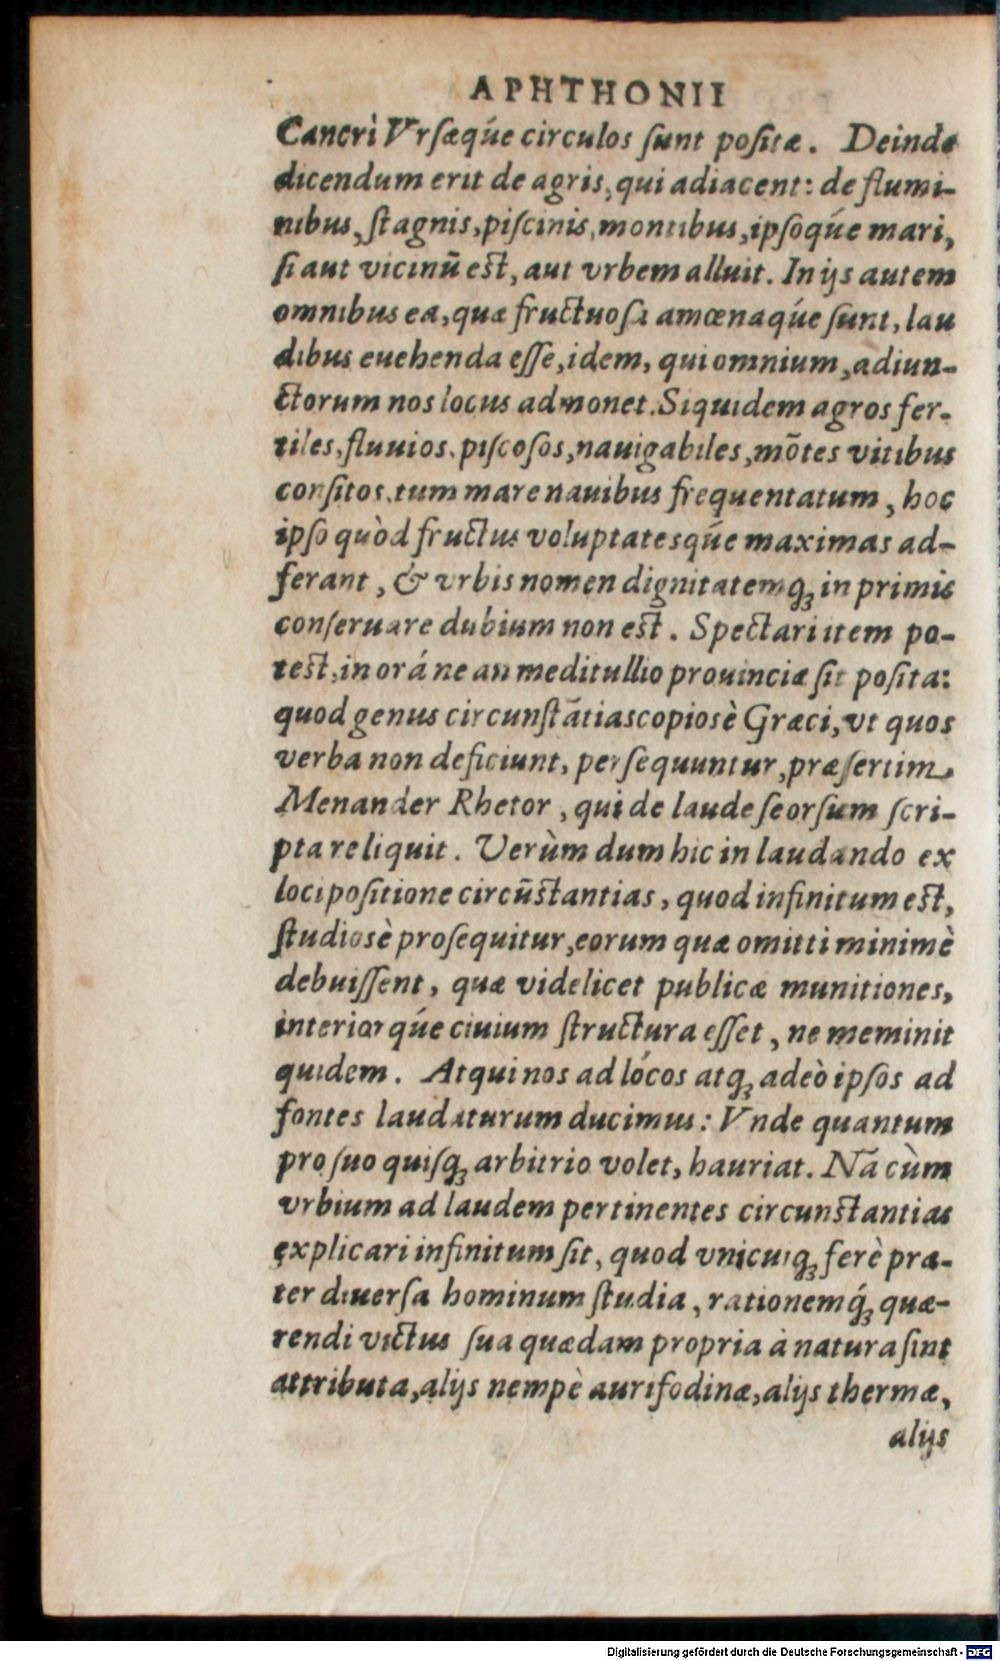 APHTHONII
Cancrì Vrſæq́ue circulos ſunt poſitæ. Deinde
dicendum erit de agris, qui adiacent: de flumi-
nibus, ſtagnis, piſcinis, montibus, ipſoq́ue mari,
ſi aut vicinũ eſt, aut vrbem alluit. In ijs autem
omnibus ea, quæ fructuoſa amœnaq́ue ſunt, lau
dibus euehenda eſſe, idem, qui omnium, adiun-
ctorum nos locus admonet. Siquidem agros fer-
tiles, fluuios, piſcoſos, nauigabiles, mõtes vitibus
conſitos, tum mare nauibus frequentatum, hoc
ipſo quòd fructus voluptatesq́ue maximas ad-
ferant, & vrbis nomen dignitatemq́ꝫ in primis
conſeruare dubium non eſt. Spectari item po-
teſt, in orá ne an meditullio prouinciæ ſit poſita:
quod genus circunſtãtias copiosè Græci, vt quos
verba non deficiunt, perſequuntur, præſertim,
Menander Rhetor, qui de laude ſeorſum ſcri-
pta reliquit. Verùm dum hic in laudando ex
loci poſitione circũſtantias, quod infinitum eſt,
ſtudiosè proſequitur, eorum quæ omitti minimè
debuiſſent, quæ videlicet publicæ munitiones,
interiorq́ue ciuium ſtructura eſſet, ne meminit
quidem. Atqui nos ad lócos atqꝫ adeò ipſos ad
fontes laudaturum ducimus: Vnde quantum
pro ſuo quiſqꝫ arbitrio volet, hauriat. Nã cùm
vrbium ad laudem pertinentes circunſtantias
explicari infinitum ſit, quod vnicuiqꝫ ferè præ-
ter diuerſa hominum ſtudia, rationemq́ꝫ quæ-
rendi victus ſua quædam propria à natura ſint
attributa, alijs nempè aurifodinæ, alijs thermæ,
alijs
Digitalisierung gefördert durch die Deutsche Forschungsgemeinschaft - DFG